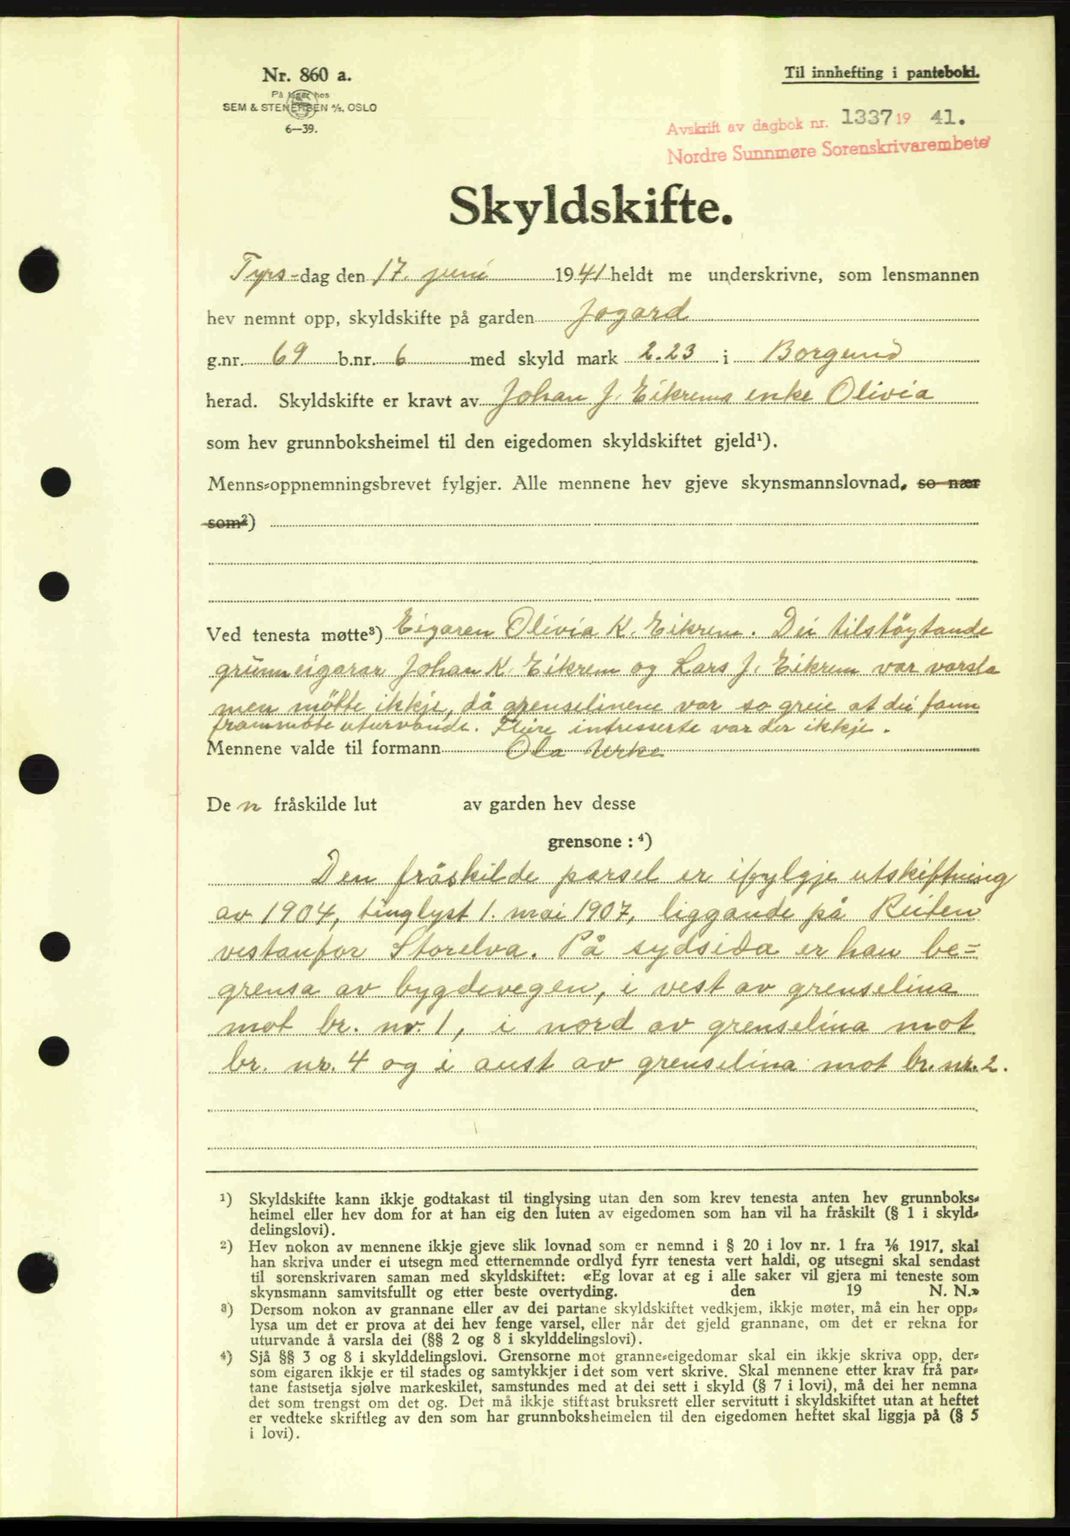 Nr. 860 a.
På lager hos
SEM & STENERSEN A/S, OSLO
6—39.
Til innhefting i pantebok.
Avskrift av dagbok nr. 1337 19 41.
Nordre Sunnmøre Sorenskrivarembete
Skyldskifte.
Tyrs-dag den 17. juni 1941 heldt me underskrivne, som lensmannen
hev nemnt opp, skyldskifte på garden Jogard
g.nr. 69 b.nr. 6 med skyld mark 2.23 i Borgund
herad. Skyldskifte er kravt av Johan J. Eikrems enke Olivia
som hev grunnboksheimel til den eigedomen skyldskiftet gjeld¹).
Menns-oppnemningsbrevet fylgjer. Alle mennene hev gjeve skynsmannslovnad, so nær
som²)
Ved tenesta møtte³) Eigaren Olivia K. Eikrem. Dei tilstøytande
grunneigarar Johan K. Eikrem og Lars J. Eikrem var varsla
men møtte ikkje, då grenselinene var so greie at dei fann
frammøte uturvande. Fleire intresserte var der ikkje.
Mennene valde til formann Ola Urke
De n fråskilde lut av garden hev desse
grensone : ⁴)
Den fråskilde parsel er ifylgje utskiftning
av 1904, tinglyst 1. mai 1907, liggande på Reiten
vestanfor Storelva. På sydsida er han be=
grensa av bygdevegen, i vest av grenselina
mot br. nr. 1, i nord av grenselina mot
br. nr. 4 og i aust av grenselina mot br. nr. 2.
¹) Skyldskifte kann ikkje godtakast til tinglysing utan den som krev tenesta anten hev grunnboks-
heimel eller hev dom for at han eig den luten av eigedomen som han vil ha fråskilt (§ 1 i skyld-
delingslovi).
²) Hev nokon av mennene ikkje gjeve slik lovnad som er nemnd i § 20 i lov nr. 1 fra 1/6 1917, skal
han skriva under ei utsegn med etternemnde ordlyd fyrr tenesta vert haldi, og utsegni skal sendast
til sorenskrivaren saman med skyldskiftet: «Eg lovar at eg i alle saker vil gjera mi teneste som
skynsmann samvitsfullt og etter beste overtyding. den 19 N. N.»
³) Dersom nokon av grannane eller av dei partane skyldskiftet vedkjem, ikkje møter, må ein her opp-
lysa um det er prova at dei hev fenge varsel, eller når det gjeld grannane, om det er rekna for
uturvande å varsla dei (§§ 2 og 8 i skylddelingslovi).
⁴) Sjå §§ 3 og 8 i skylddelingslovi. Grensorne mot granne-eigedomar skal ein ikkje skriva opp, der-
som eigaren ikkje er til stades og samtykkjer i det som vert skrive. Skal mennene etter krav frå par-
tane fastsetja sjølve markeskilet, samstundes med at dei sett i skyld (§ 7 i lovi), må dei her nemna
det som trengst om det og. Det må ikkje stiftast bruksrett eller servitutt i skyldskiftet utan at heftet
er vedteke skriftleg av den som har grunnboksheimelen til den eigedomen heftet skal liggja på (§ 5
i lovi).